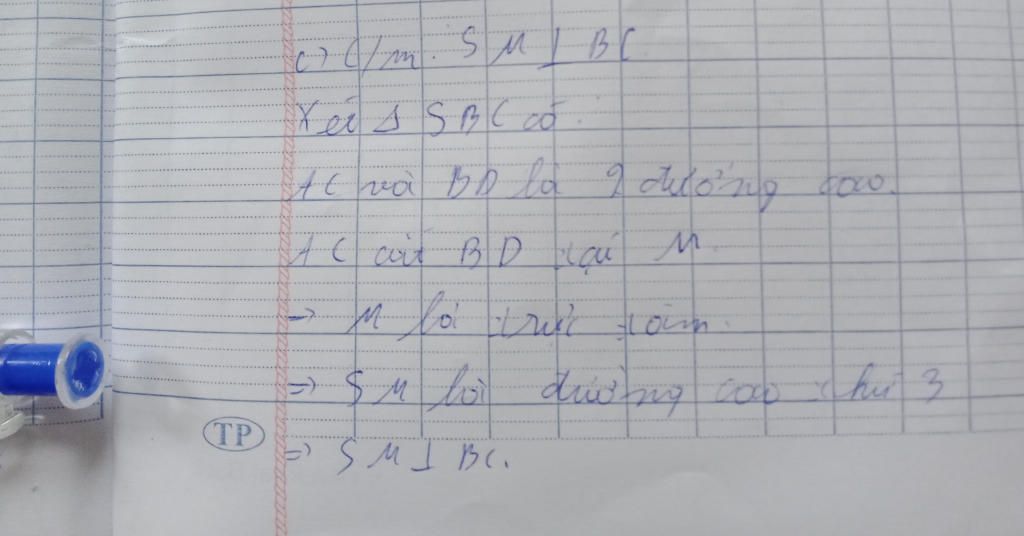 c) C/m: SM ⊥ BC
Xét Δ SBC có:
AC và BD là 2 đường cao.
AC cắt BD tại M.
→ M là trực tâm.
=> SM là đường cao thứ 3
TP
=> SM ⊥ BC.